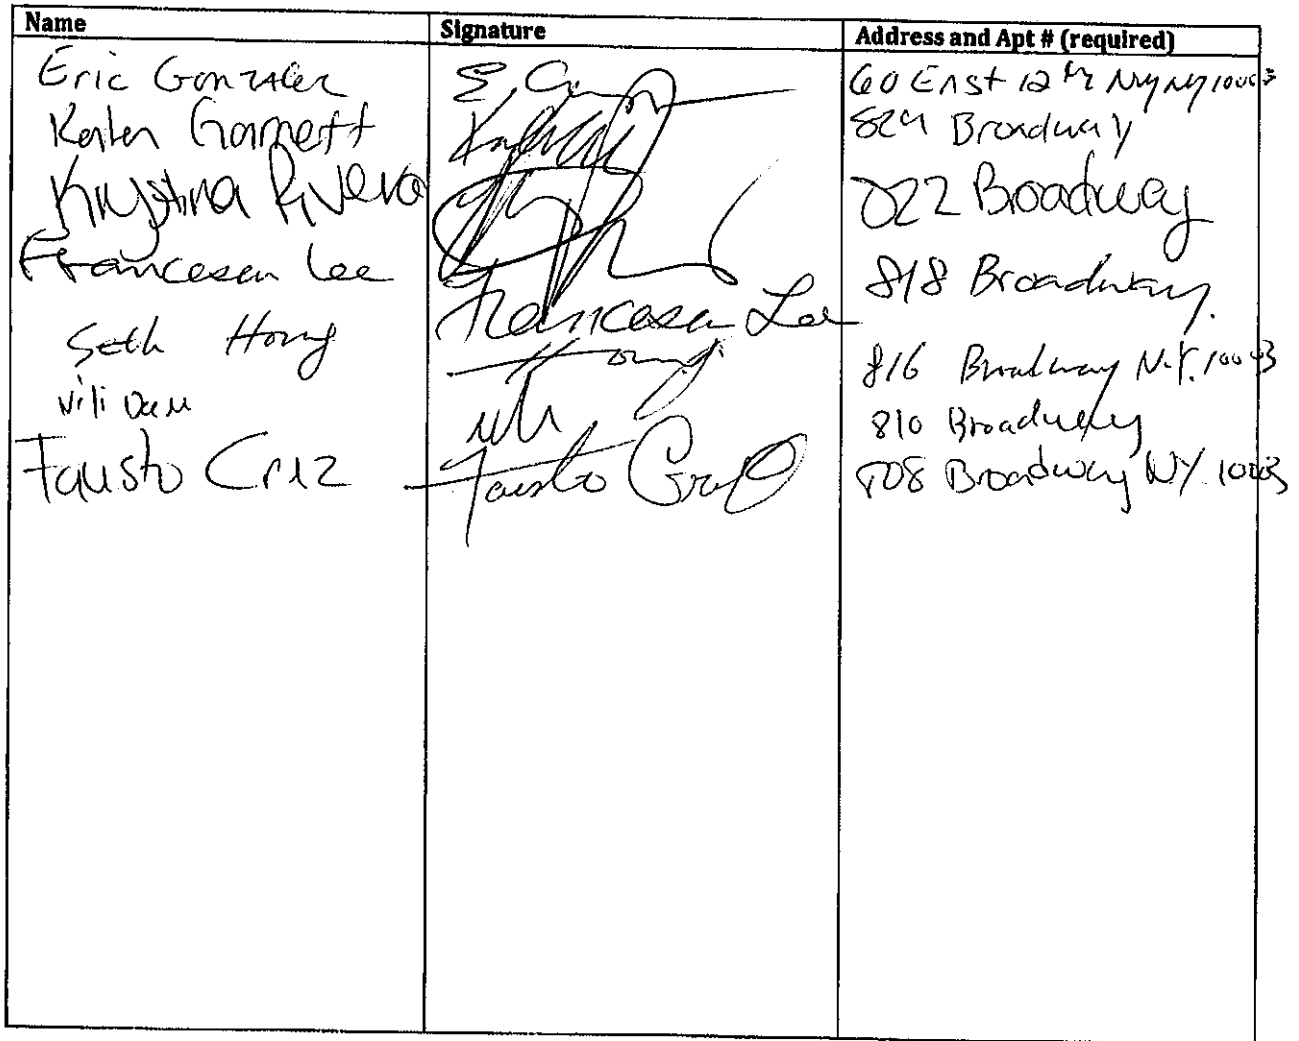 Name Signature Address and Apt # (required)
Eric Gonzalez E. G 60 East 12th NY NY 10003
Karen Garnett 829 Broadway
Krystina Rivera 822 Broadway
Francesca Lee Francesca Lee 818 Broadway.
Seth Hong Hong 816 Broadway N.Y. 10003
810 Broadway
Fausto Cruz Fausto Cruz 808 Broadway NY 10003